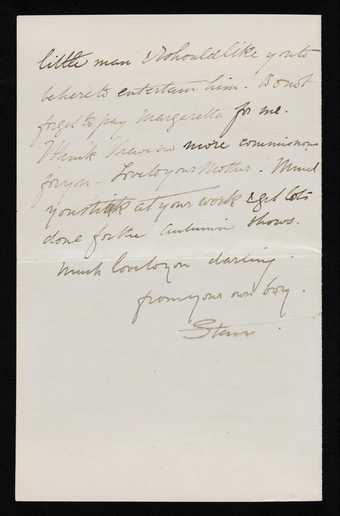 little man & should like you to
be here to entertain him. Do not
forget to pay Margaretta for me.
I think I have no more commissions
for you. Love to your Mother. Mind
you stick at your work & get lots
done for the Autumn shows.
Much love to you darling.
from your own boy.